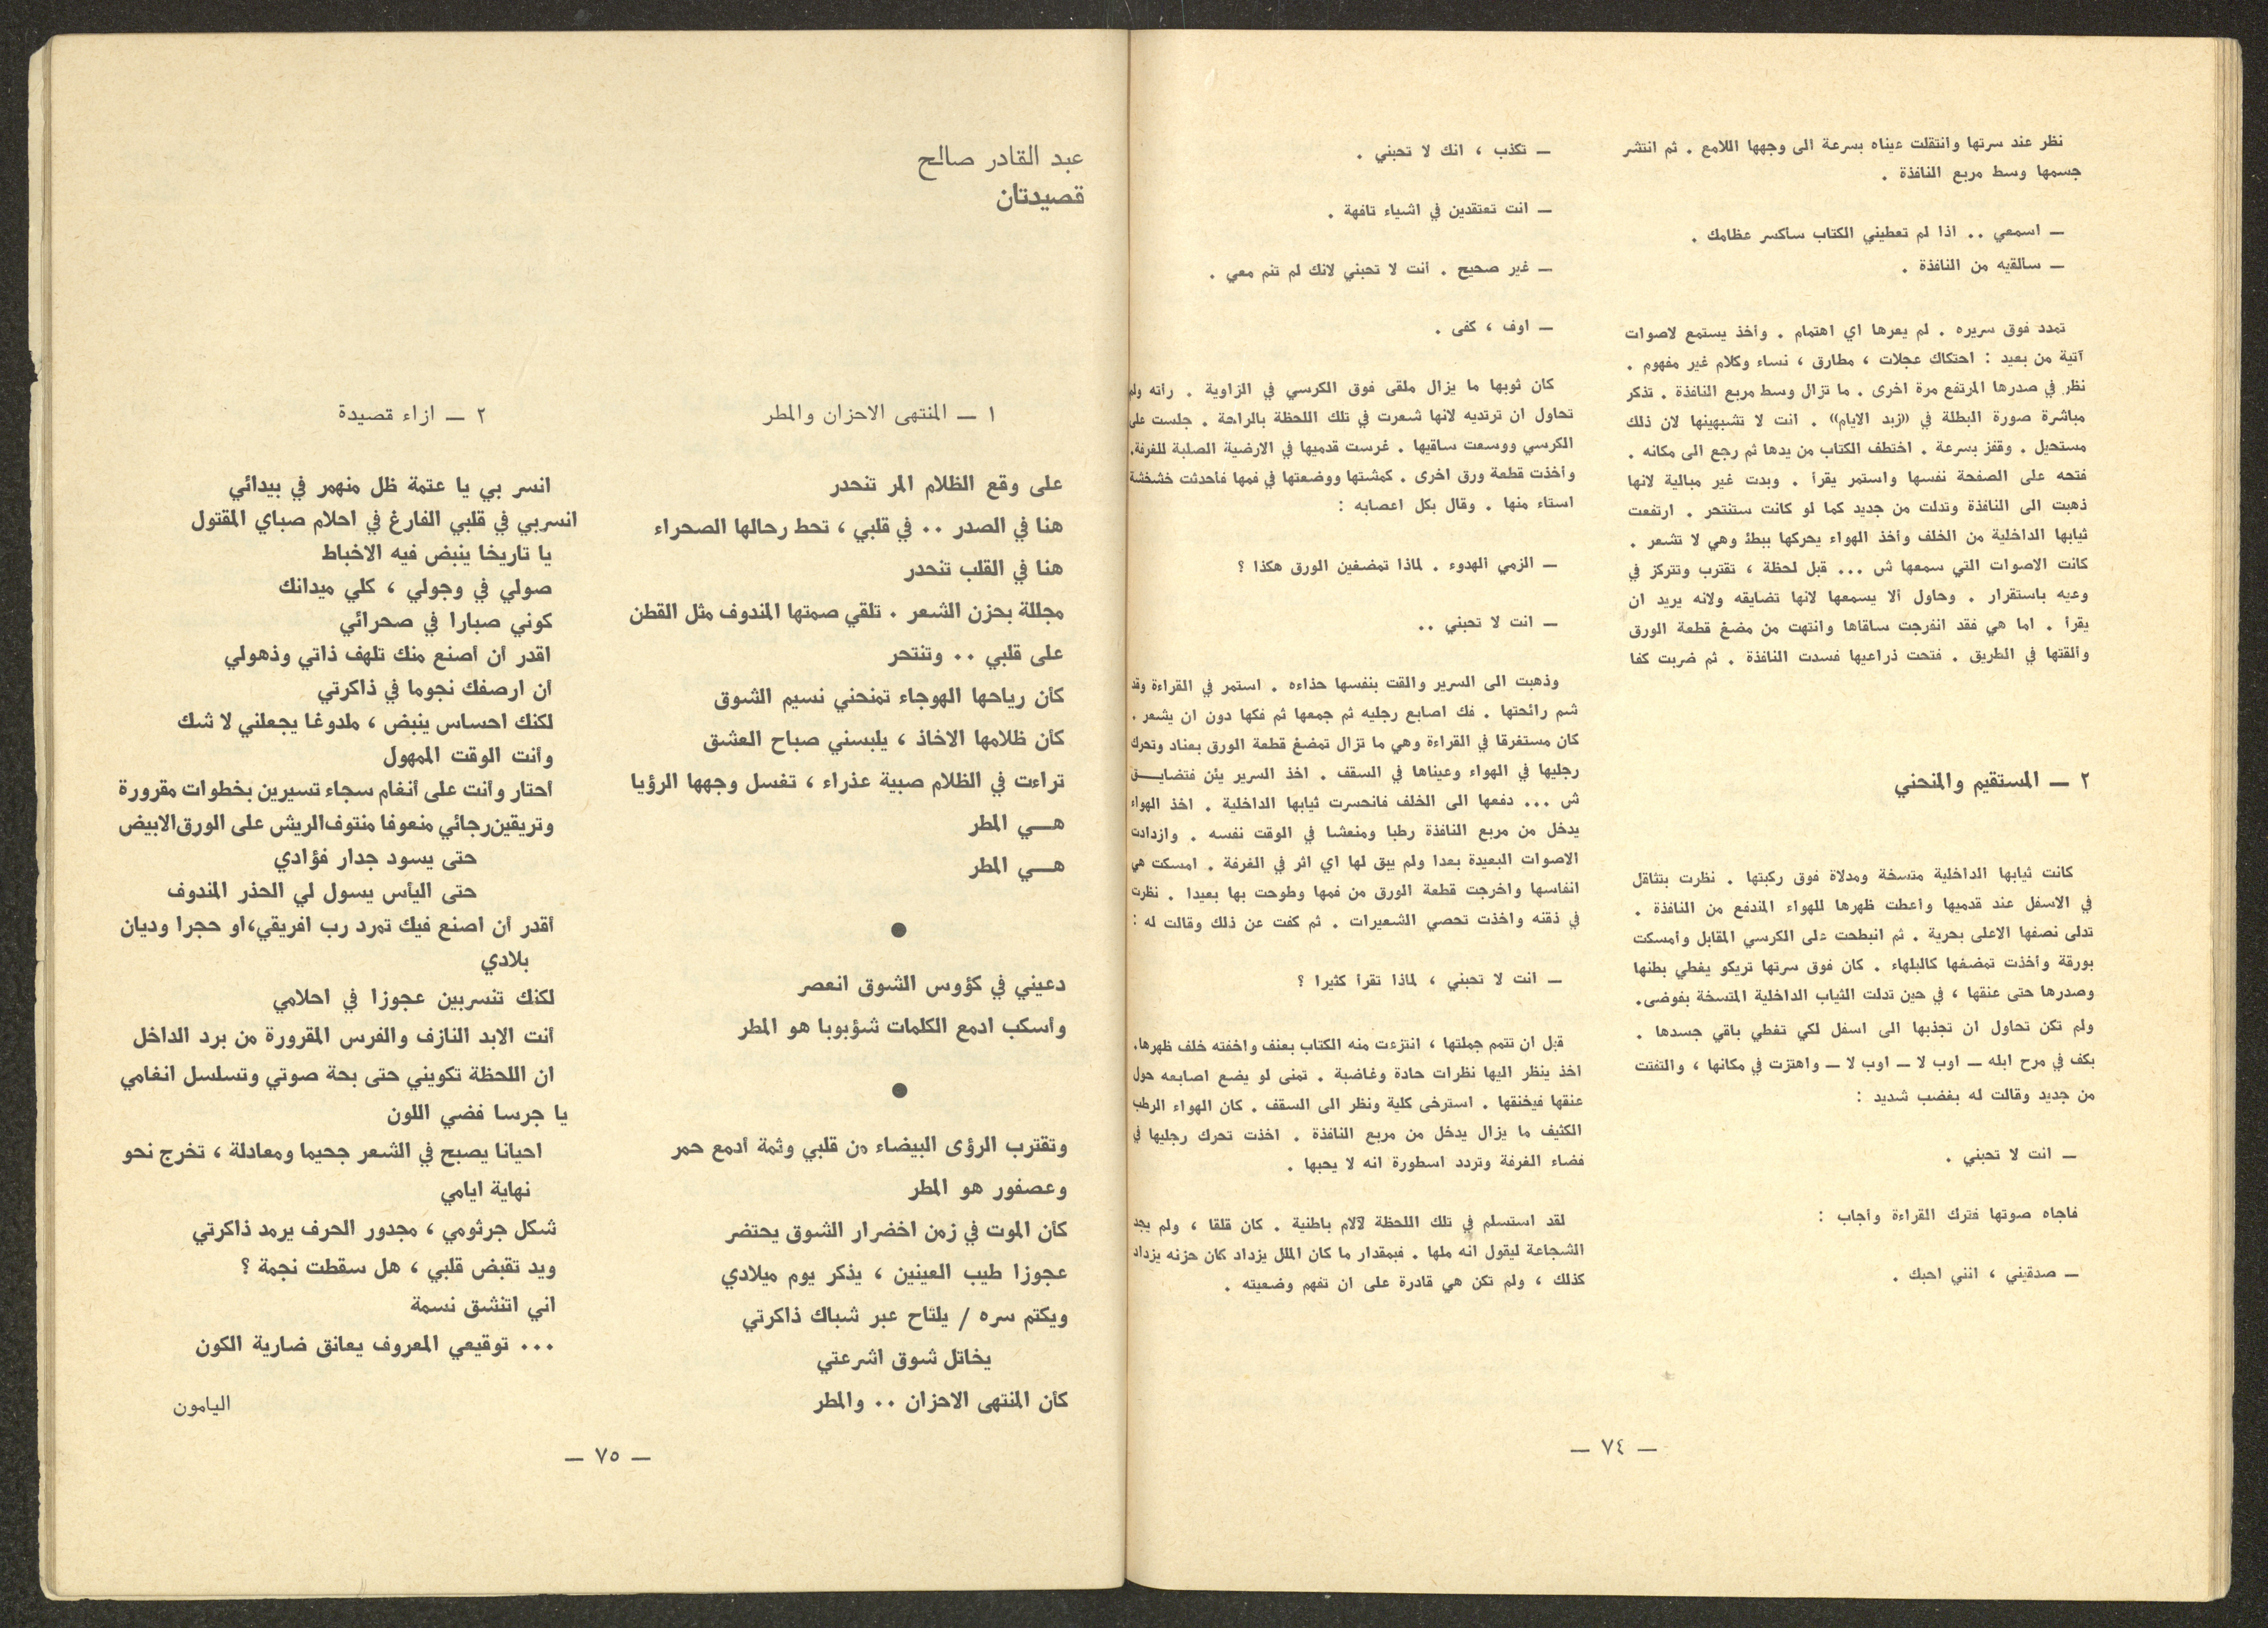 نظر عند سرتها وانتقلت عيناه بسرعة الى وجهها اللامع . ثم انتشر
جسمها وسط مربع النافذة .
— اسمعي .. اذا لم تعطيني الكتاب سأكسر عظامك .
— سألقيه من النافذة .
تمدد فوق سريره . لم يعرها اي اهتمام . وأخذ يستمع لاصوات
آتية من بعيد : احتكاك عجلات ، مطارق ، نساء وكلام غير مفهوم .
نظر في صدرها المرتفع مرة اخرى . ما تزال وسط مربع النافذة . تذكر
مباشرة صورة البطلة في «زبد الايام» . انت لا تشبهينها لان ذلك
مستحيل . وقفز بسرعة . اختطف الكتاب من يدها ثم رجع الى مكانه .
فتحه على الصفحة نفسها واستمر يقرأ . وبدت غير مبالية لانها
ذهبت الى النافذة وتدلت من جديد كما لو كانت ستنتحر . ارتفعت
ثيابها الداخلية من الخلف وأخذ الهواء يحركها ببطئ وهي لا تشعر .
كانت الاصوات التي سمعها ش ... قبل لحظة ، تقترب وتتركز في
وعيه باستقرار . وحاول ألا يسمعها لانها تضايقه ولانه يريد ان
يقرأ . اما هي فقد انفرجت ساقاها وانتهت من مضغ قطعة الورق
وألقتها في الطريق . فتحت ذراعيها فسدت النافذة . ثم ضربت كفا
٢ — المستقيم والمنحني
كانت ثيابها الداخلية متسخة ومدلاة فوق ركبتها . نظرت بتثاقل
في الاسفل عند قدميها وأعطت ظهرها للهواء المندفع من النافذة .
تدلى نصفها الاعلى بحرية . ثم انبطحت على الكرسي المقابل وأمسكت
بورقة وأخذت تمضغها كالبلهاء . كان فوق سرتها تريكو يغطي بطنها
وصدرها حتى عنقها ، في حين تدلت الثياب الداخلية المتسخة بفوضى.
ولم تكن تحاول ان تجذبها الى اسفل لكي تغطي باقي جسدها .
بكف في مرح ابله — اوب لا — اوب لا — واهتزت في مكانها ، والتفتت
من جديد وقالت له بغضب شديد :
— انت لا تحبني .
فاجاه صوتها فترك القراءة وأجاب :
— صدقيني ، انني احبك .
— تكذب ، انك لا تحبني .
— انت تعتقدين في اشياء تافهة .
— غير صحيح . انت لا تحبني لانك لم تنم معي .
— اوف ، كفى .
كان ثوبها ما يزال ملقى فوق الكرسي في الزاوية . رأته ولم
تحاول ان ترتديه لانها شعرت في تلك اللحظة بالراحة . جلست على
الكرسي ووسعت ساقيها . غرست قدميها في الارضية الصلبة للغرفة.
وأخذت قطعة ورق اخرى . كمشتها ووضعتها في فمها فأحدثت خشخشة
استاء منها . وقال بكل اعصابه :
— الزمي الهدوء . لماذا تمضغين الورق هكذا ؟
— انت لا تحبني ..
وذهبت الى السرير والقت بنفسها حذاءه . استمر في القراءة وقد
شم رائحتها . فك اصابع رجليه ثم جمعها ثم فكها دون ان يشعر .
كان مستغرقا في القراءة وهي ما تزال تمضغ قطعة الورق بعناد وتحرك
رجليها في الهواء وعيناها في السقف . اخذ السرير يئن فتضايـــق
ش ... دفعها الى الخلف فانحسرت ثيابها الداخلية . اخذ الهواء
يدخل من مربع النافذة رطبا ومنعشا في الوقت نفسه . وازدادت
الاصوات البعيدة بعدا ولم يبق لها اي اثر في الغرفة . امسكت هي
انفاسها واخرجت قطعة الورق من فمها وطوحت بها بعيدا . نظرت
في ذقنه واخذت تحصي الشعيرات . ثم كفت عن ذلك وقالت له :
— انت لا تحبني ، لماذا تقرأ كثيرا ؟
قبل ان تتمم جملتها ، انتزعت منه الكتاب بعنف واخفته خلف ظهرها.
اخذ ينظر اليها نظرات حادة وغاضبة . تمنى لو يضع اصابعه حول
عنقها فيخنقها . استرخى كلية ونظر الى السقف . كان الهواء الرطب
الكثيف ما يزال يدخل من مربع النافذة . اخذت تحرك رجليها في
فضاء الغرفة وتردد اسطورة انه لا يحبها .
لقد استسلم في تلك اللحظة لآلام باطنية . كان قلقا ، ولم يجد
الشجاعة ليقول انه ملها . فبمقدار ما كان الملل يزداد كان حزنه يزداد
كذلك ، ولم تكن هي قادرة على ان تفهم وضعيته .
— ٧٤ —
عبد القادر صالح
قصيدتان
١ — المنتهى الاحزان والمطر
على وقع الظلام المر تنحدر
هنا في الصدر .. في قلبي ، تحط رحالها الصحراء
هنا في القلب تنحدر
مجللة بحزن الشعر . تلقي صمتها المندوف مثل القطن
على قلبي .. وتنتحر
كأن رياحها الهوجاء تمنحني نسيم الشوق
كأن ظلامها الاخاذ ، يلبسني صباح العشق
تراءت في الظلام صبية عذراء ، تغسل وجهها الرؤيا
هـــي المطر
هـــي المطر
●
دعيني في كؤوس الشوق انعصر
وأسكب ادمع الكلمات شؤبوبا هو المطر
●
وتقترب الرؤى البيضاء من قلبي وثمة أدمع حمر
وعصفور هو المطر
كأن الموت في زمن اخضرار الشوق يحتضر
عجوزا طيب العينين ، يذكر يوم ميلادي
ويكتم سره / يلتاح عبر شباك ذاكرتي
يخاتل شوق اشرعتي
كأن المنتهى الاحزان .. والمطر
٢ — ازاء قصيدة
انسر بي يا عتمة ظل منهمر في بيدائي
انسربي في قلبي الفارغ في احلام صباي المقتول
يا تاريخا ينبض فيه الاخباط
صولي في وجولي ، كلي ميدانك
كوني صبارا في صحرائي
اقدر أن أصنع منك تلهف ذاتي وذهولي
أن ارصفك نجوما في ذاكرتي
لكنك احساس ينبض ، ملدوغا يجعلني لا شك
وأنت الوقت الممهول
أحتار وأنت على أنغام سجاء تسيرين بخطوات مقرورة
وتريقين رجائي منعوفا منتوف الريش على الورق الابيض
حتى يسود جدار فؤادي
حتى اليأس يسول لي الحذر المندوف
أقدر أن اصنع فيك تمرد رب افريقي،او حجرا وديان
بلادي
لكنك تنسربين عجوزا في احلامي
أنت الابد النازف والفرس المقرورة من برد الداخل
ان اللحظة تكويني حتى بحة صوتي وتسلسل انغامي
يا جرسا فضي اللون
احيانا يصبح في الشعر جحيما ومعادلة ، تخرج نحو
نهاية ايامي
شكل جرثومي ، مجدور الحرف يرمد ذاكرتي
ويد تقبض قلبي ، هل سقطت نجمة ؟
اني اتنشق نسمة
... توقيعي المعروف يعانق ضارية الكون
اليامون
— ٧٥ —